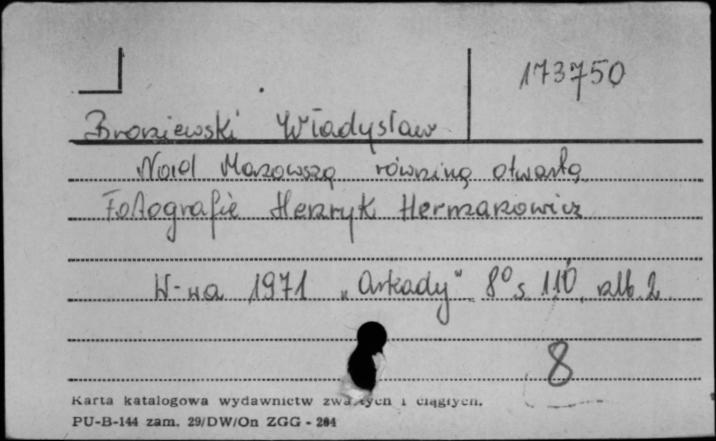 173750
Broniewski Władysław
Nad Mazowszą równiną otwartą
Fotografie Henryk Hermanowicz
W-wa 1971 „Arkady" 8° s 110, alb. 2
8
Karta katalogowa wydawnictw zwartych i ciągłych.
PU-B-144 zam. 29/DW/On ZGG - 264